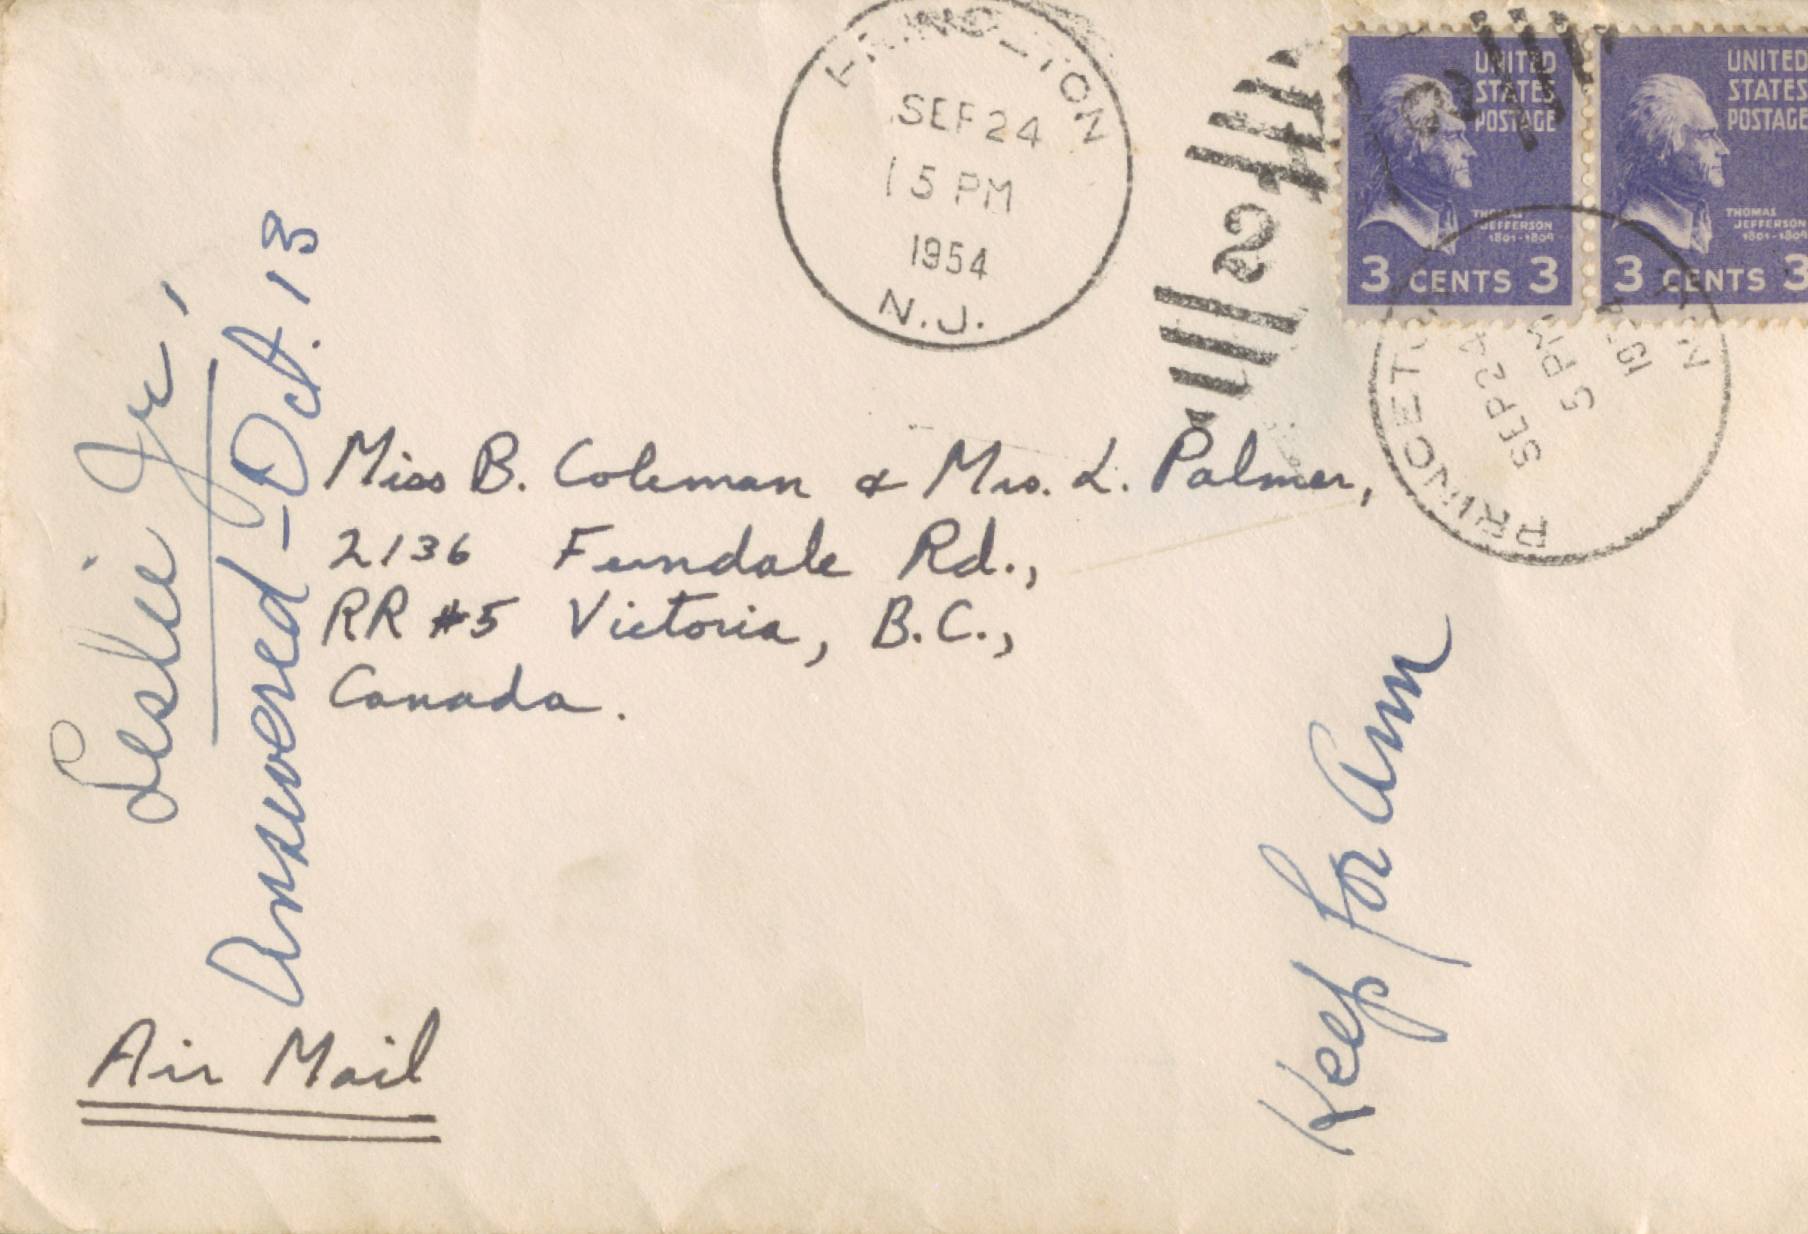 PRINCETON
SEP 24
5 PM
1954
N.J.
2
UNITED
STATES
POSTAGE
THOMAS
JEFFERSON
1801-1809
3 CENTS 3
UNITED
STATES
POSTAGE
THOMAS
JEFFERSON
1801-1809
3 CENTS 3
2
PRINCETON
SEP 24
5 PM
1954
N.J.
Leslie Jr.
Answered - Oct. 13
Miss B. Coleman & Mrs. L. Palmer,
2136 Ferndale Rd.,
RR #5 Victoria, B.C.,
Canada.
Air Mail
Keep for Ann